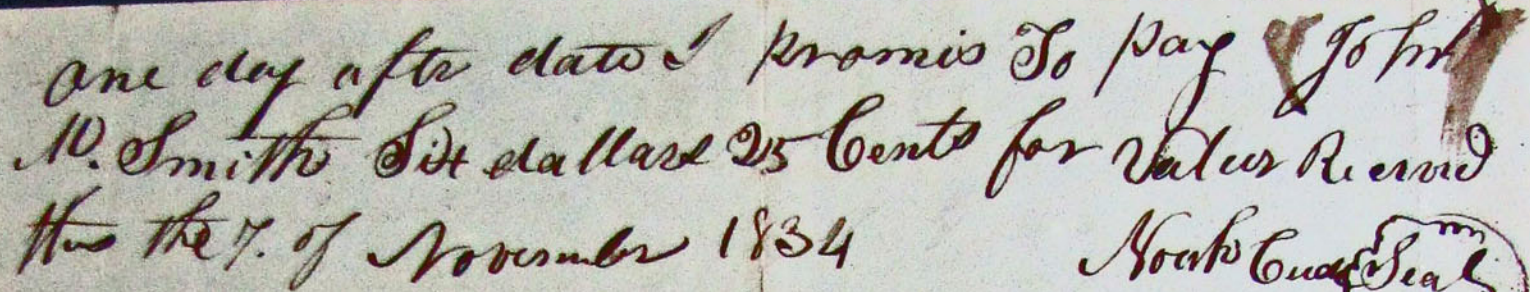 one day after date I promis To pay John
W. Smith Six dollars 25 Cents for Value Received
this the 7. of November 1834
Noah Seal